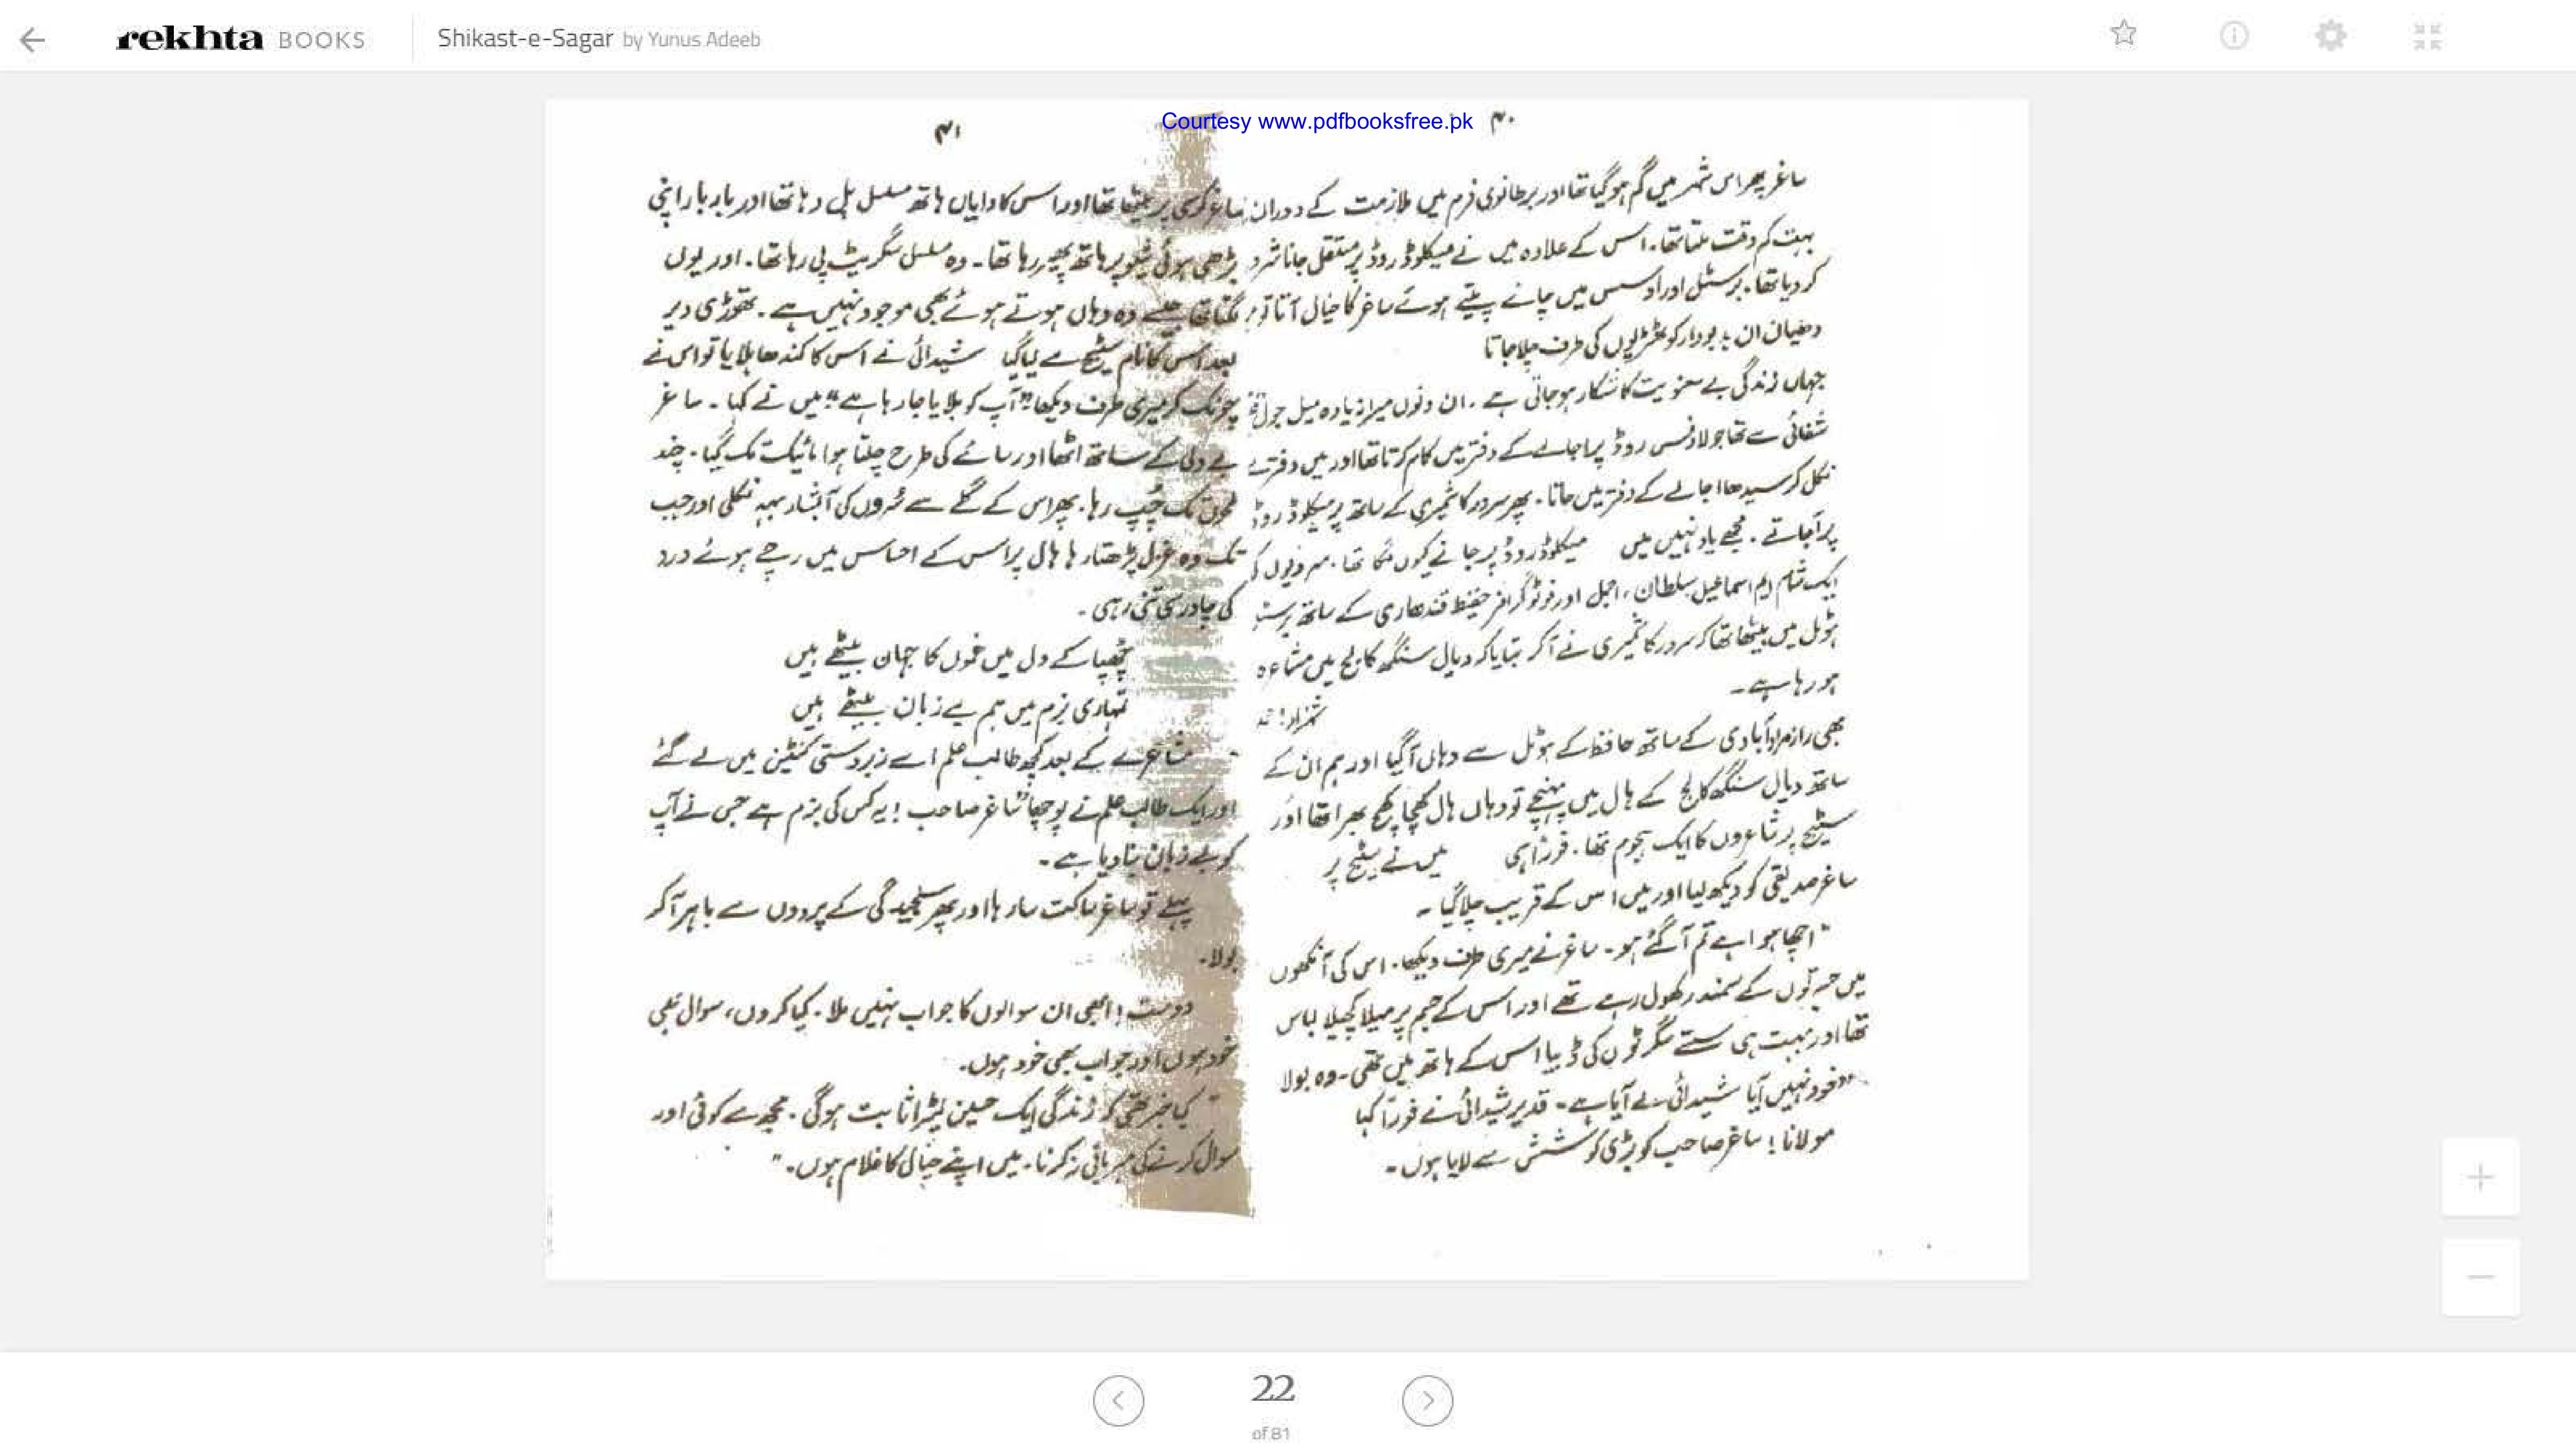 rekhta BOOKS
Shikast-e-Sagar by Yunus Adeeb
Courtesy www.pdfbooksfree.pk
۴۰
ساغر پھر اس شہر میں گم ہو گیا تھا اور برطانوی فرم میں ملازمت کے دوران
بہت کم وقت ملتا تھا۔ اس کے علاوہ میں نے میکلوڈ روڈ پر مستقل جانا شرو
کر دیا تھا۔ برسٹل اور اوسس میں چائے پیتے ہوئے ساغر کا خیال آتا تو
دھیان ان بدبودار کوٹھڑیوں کی طرف چلا جاتا
جہاں زندگی بے معنویت کا شکار ہو جاتی ہے۔ ان دنوں میرا زیادہ میل جول
شفائی سے تھا جو لارنس روڈ پر اجالے کے دفتر میں کام کرتا تھا اور میں دفتر سے
نکل کر سیدھا اجالے کے دفتر میں جاتا۔ پھر سرور کاشمیری کے ساتھ میکلوڈ روڈ
پر آجاتے۔ مجھے یاد نہیں میں میکلوڈ روڈ پر جانے کیوں لگا تھا۔ سردیوں کی
ایک شام ایم اسماعیل سلطان، اجمل اور فوٹو گرافر حفیظ قندھاری کے ساتھ
ہوٹل میں بیٹھا تھا کہ سرور کاشمیری نے آکر بتایا کہ دیال سنگھ کالج میں مشاعرہ
ہو رہا ہے۔
شہزاد احمد
بھی راز مراد آبادی کے ساتھ حافظ کے ہوٹل سے وہاں آگیا اور ہم ان کے
ساتھ دیال سنگھ کالج کے ہال میں پہنچے تو وہاں ہال کھچا کھچ بھرا تھا اور
سٹیج پر شاعروں کا ایک ہجوم تھا۔ فوراً ہی میں نے سٹیج پر
ساغر صدیقی کو دیکھ لیا اور میں اس کے قریب چلا گیا۔
"اچھا ہوا ہے تم آگئے ہو۔ ساغر نے میری طرف دیکھا۔ اس کی آنکھوں
میں حسرتوں کے سمندر کھول رہے تھے اور اس کے جسم پر میلا کچیلا لباس
تھا اور بہت ہی سستے سگرٹوں کی ڈبیا اس کے ہاتھ میں تھی۔ وہ بولا
"خود نہیں آیا شیدائی لے آیا ہے۔ قدیر شیدائی نے فوراً کہا
مولانا! ساغر صاحب کو بڑی کوشش سے لایا ہوں۔
۴۱
ساغر کرسی پر بیٹھا تھا اور اس کا دایاں ہاتھ مسلسل ہل رہا تھا اور بار بار اپنی
بڑھی ہوئی شیو پر ہاتھ پھیر رہا تھا۔ وہ مسلسل سگریٹ پی رہا تھا۔ اور یوں
لگتا تھا جیسے وہ وہاں ہوتے ہوئے بھی موجود نہیں ہے۔ تھوڑی دیر
بعد اس کا نام سٹیج سے لیا گیا شیدائی نے اس کا کندھا ہلایا تو اس نے
چونک کر میری طرف دیکھا "آپ کو بلایا جا رہا ہے" میں نے کہا۔ ساغر
بے دلی کے ساتھ اٹھا اور سائے کی طرح چلتا ہوا مائیک تک گیا۔ چند
لمحوں تک چُپ رہا۔ پھر اس کے گلے سے سُروں کی آبشار بہہ نکلی اور جب
تک وہ غزل پڑھتا رہا ہال پر اس کے احساس میں رچے ہوئے درد
کی چادر سی تنی رہی۔
چُھپا کے دل میں غموں کا جہان بیٹھے ہیں
تمہاری بزم میں ہم بے زبان بیٹھے ہیں
مشاعرے کے بعد کچھ طالب علم اسے زبردستی کنٹین میں لے گئے
اور ایک طالب علم نے پوچھا "ساغر صاحب! یہ کس کی بزم ہے جس نے آپ
کو بے زبان بنا دیا ہے۔
پہلے تو ساغر ساکت سا رہا اور پھر سنجیدگی کے پردوں سے باہر آکر
بولا۔
دوست! ابھی ان سوالوں کا جواب نہیں ملا۔ کیا کروں، سوال بھی
خود ہوں اور جواب بھی خود ہوں۔
کیا خبر تھی کہ زندگی ایک حسین لیٹرا ثابت ہوگی۔ مجھ سے کوئی اور
سوال کرنے کی مہربانی نہ کرنا۔ میں اپنے خیال کا غلام ہوں۔"
22
of 81